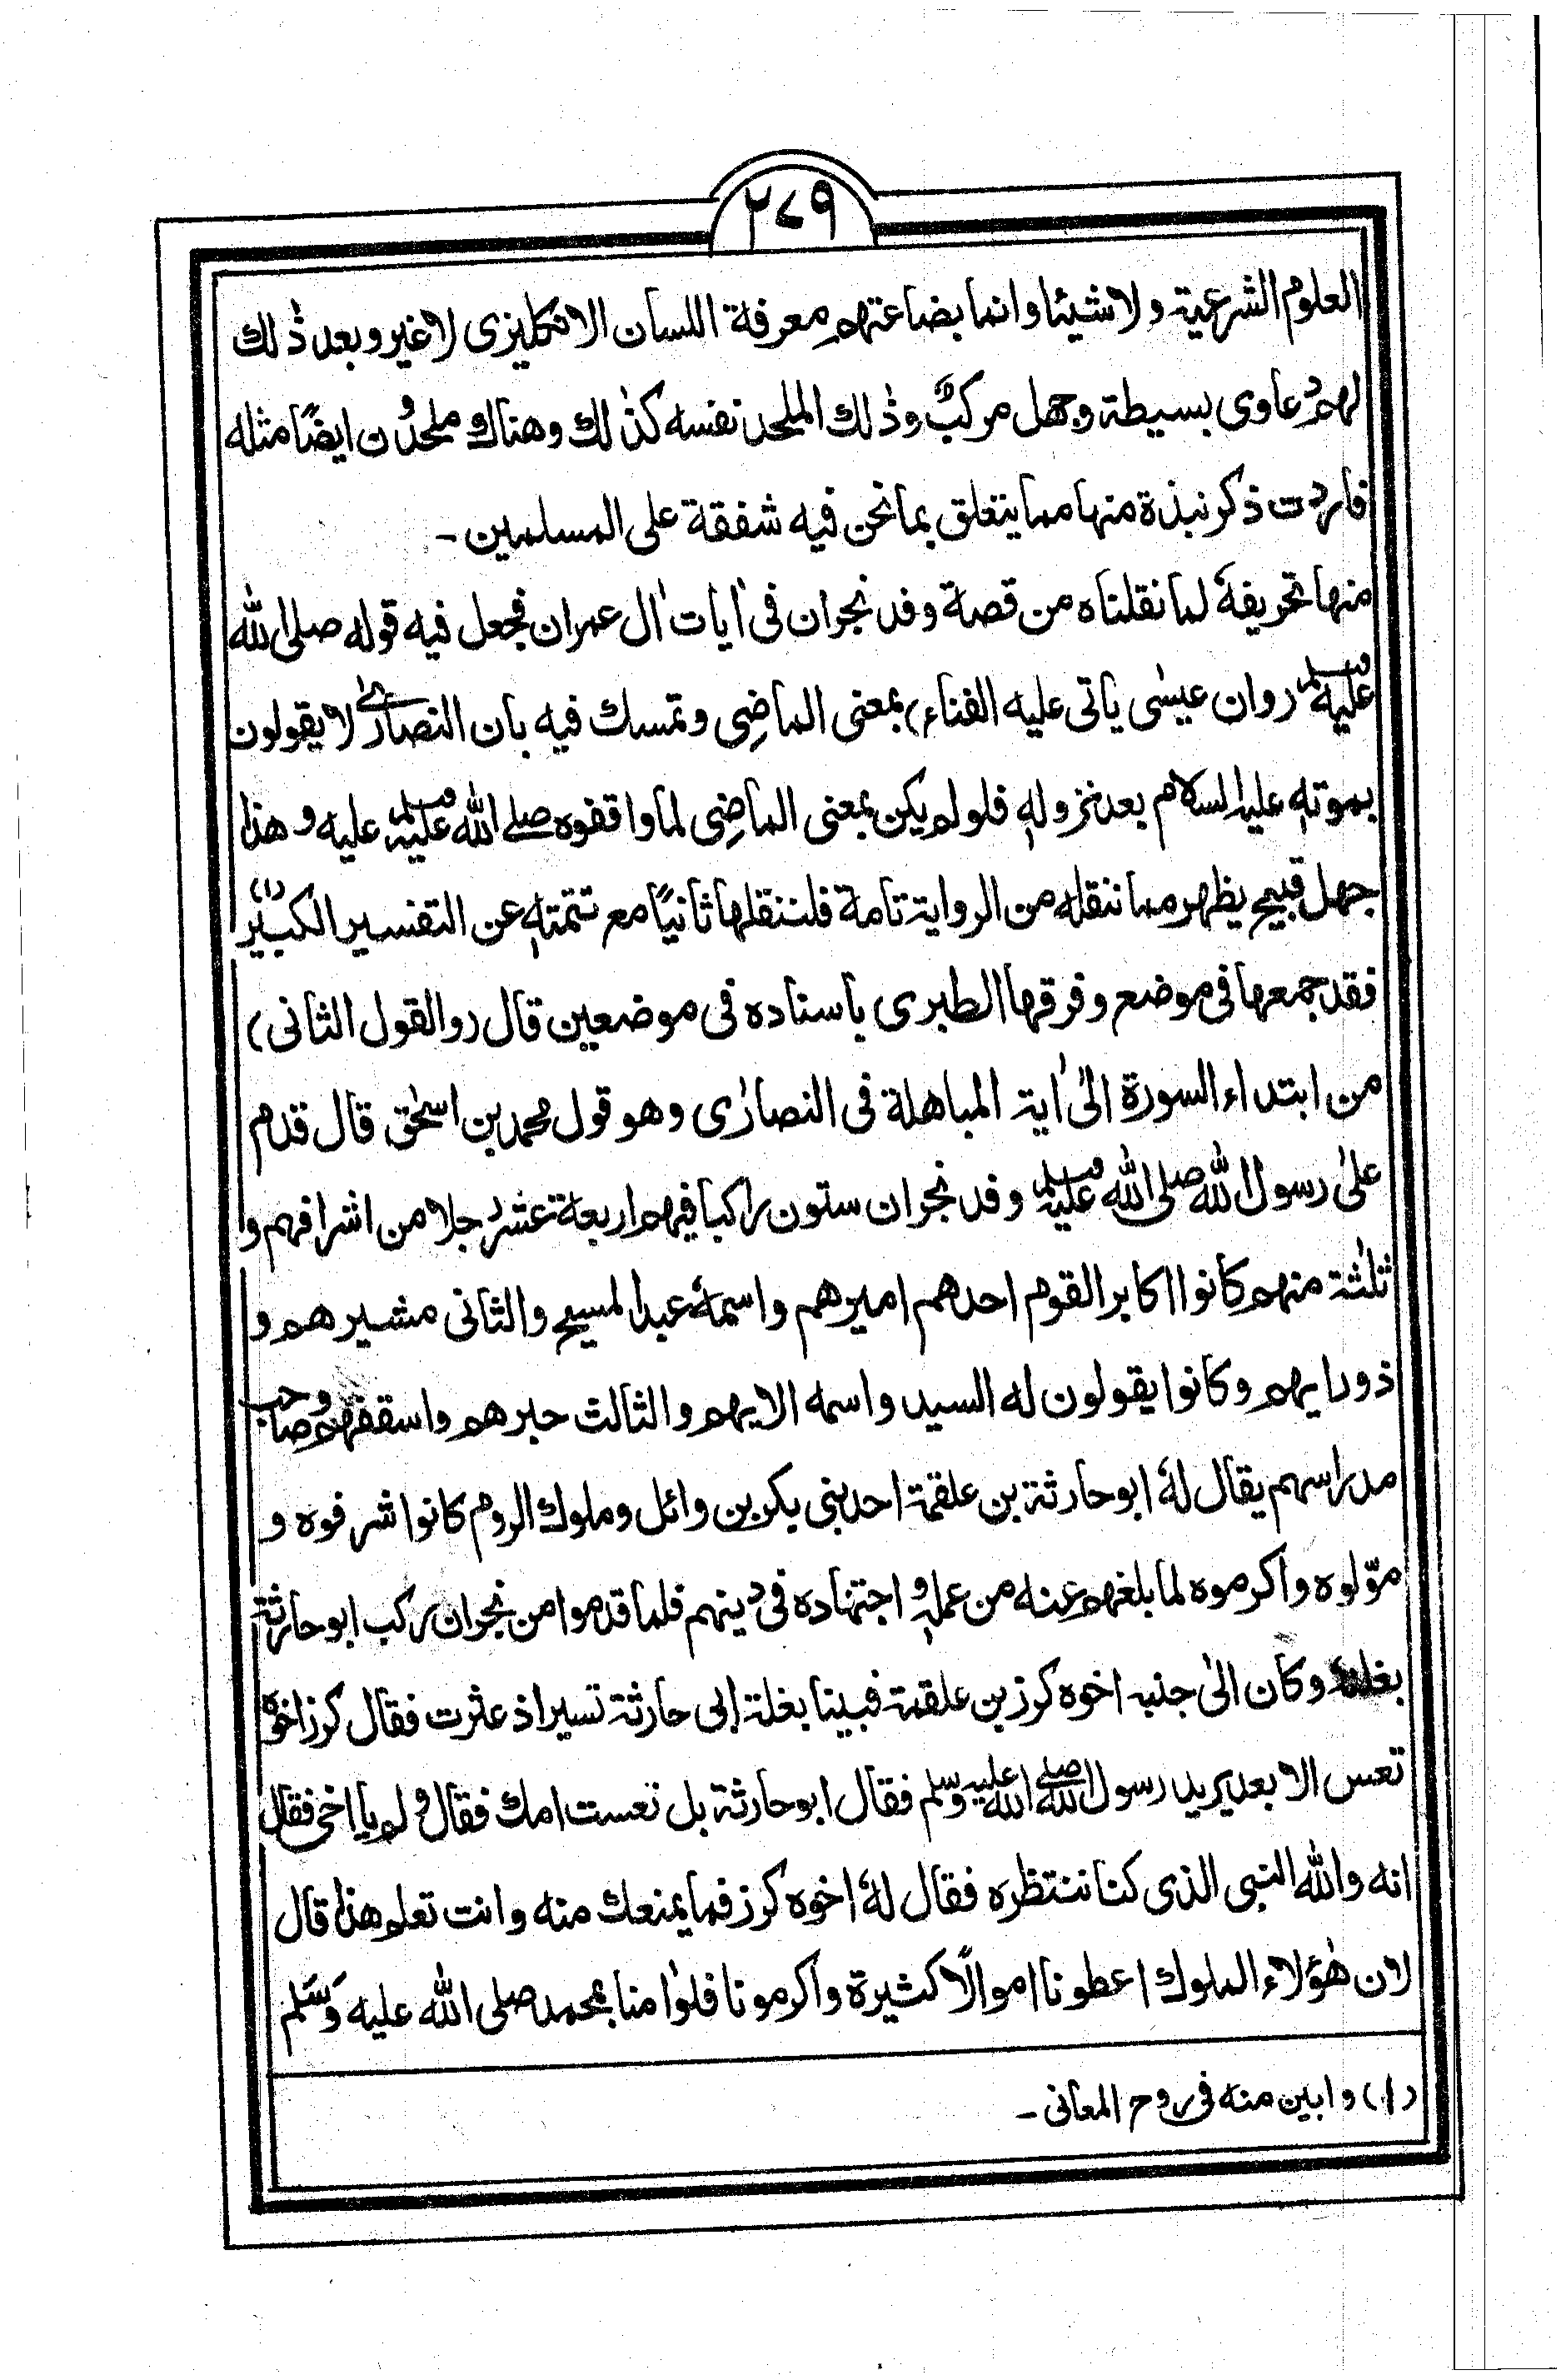 ۲۷۹
العلوم الشرعية ولا شيئا وانما بضاعتهم معرفة اللسان الانكليزى لا غير وبعد ذٰلك
لهم دعاوى بسيطة وجهل مركبٌ وذٰلك الملحد نفسه كذٰلك وهناك ملحدُون ايضًا مثله
فاردت ذكر نبذة منها مما يتعلق بما نحن فيه شفقة على المسلمين ـ
منها تحريفهٗ لما نقلناه من قصة وفد نجران فى اٰيات اٰل عمران فجعل فيه قوله صلى الله
عليه وسلم (وان عيسٰى ياتى عليه الفناء) بمعنى الماضِى وتمسك فيه بان النصارٰى لا يقولون
بموتهٖ عليه السلام بعد نزولهٖ فلو لم يكن بمعنى الماضِى لما واقفوه صلے الله عليه وسلم عليه وهذا
جهل قبيح يظهر مما ننقله من الرواية تامة فلننقلها ثانيًا مع تتمتهٖ عن التفسير الكبير (۱)
فقد جمعها فى موضع وفرقها الطبرى باسناده فى موضعين قال (والقول الثانى)
من ابتداء السورة الىٰ اٰية المباهلة فى النصارٰى وهو قول محمد بن اسحٰق قال قدم
علىٰ رسول الله صلى الله عليه وسلم وفد نجران ستون راكبا فيهم اربعة عشر رجلا من اشرافهم و
ثلٰثة منهم كانوا اكابر القوم احدهم اميرهم واسمهٗ عبد المسيح والثانى مشيرهم و
ذو رايهم وكانوا يقولون له السيد واسمه الايهم والثالث حبرهم واسقفهم وصاحب
مدراسهم يقال لهٗ ابو حارثة بن علقمة احد بنى بكر بن وائل وملوك الروم كانوا شرفوه و
موّلوه واكرموه لما بلغهم عنه من علمهٖ واجتهاده فى دينهم فلما قدموا من نجران ركب ابو حارثة
بغلته وكان الىٰ جنبه اخوه كرز بن علقمة فبينا بغلة ابى حارثة تسير اذ عثرت فقال كرز اخوه
تعس الابعد يريد رسول الله صلے الله عليه وسلم فقال ابو حارثة بل تعست امك فقال ولم يا اخى فقال
انه والله النبى الذى كنا ننتظره فقال لهٗ اخوه كرز فما يمنعك منه وانت تعلم هذا قال
لان هٰؤلاء الملوك اعطونا اموالًا كثيرة واكرمونا فلو اٰمنا بمحمد صلى الله عليه وَسَلم
(۱) وابين منه فى روح المعانى ـ